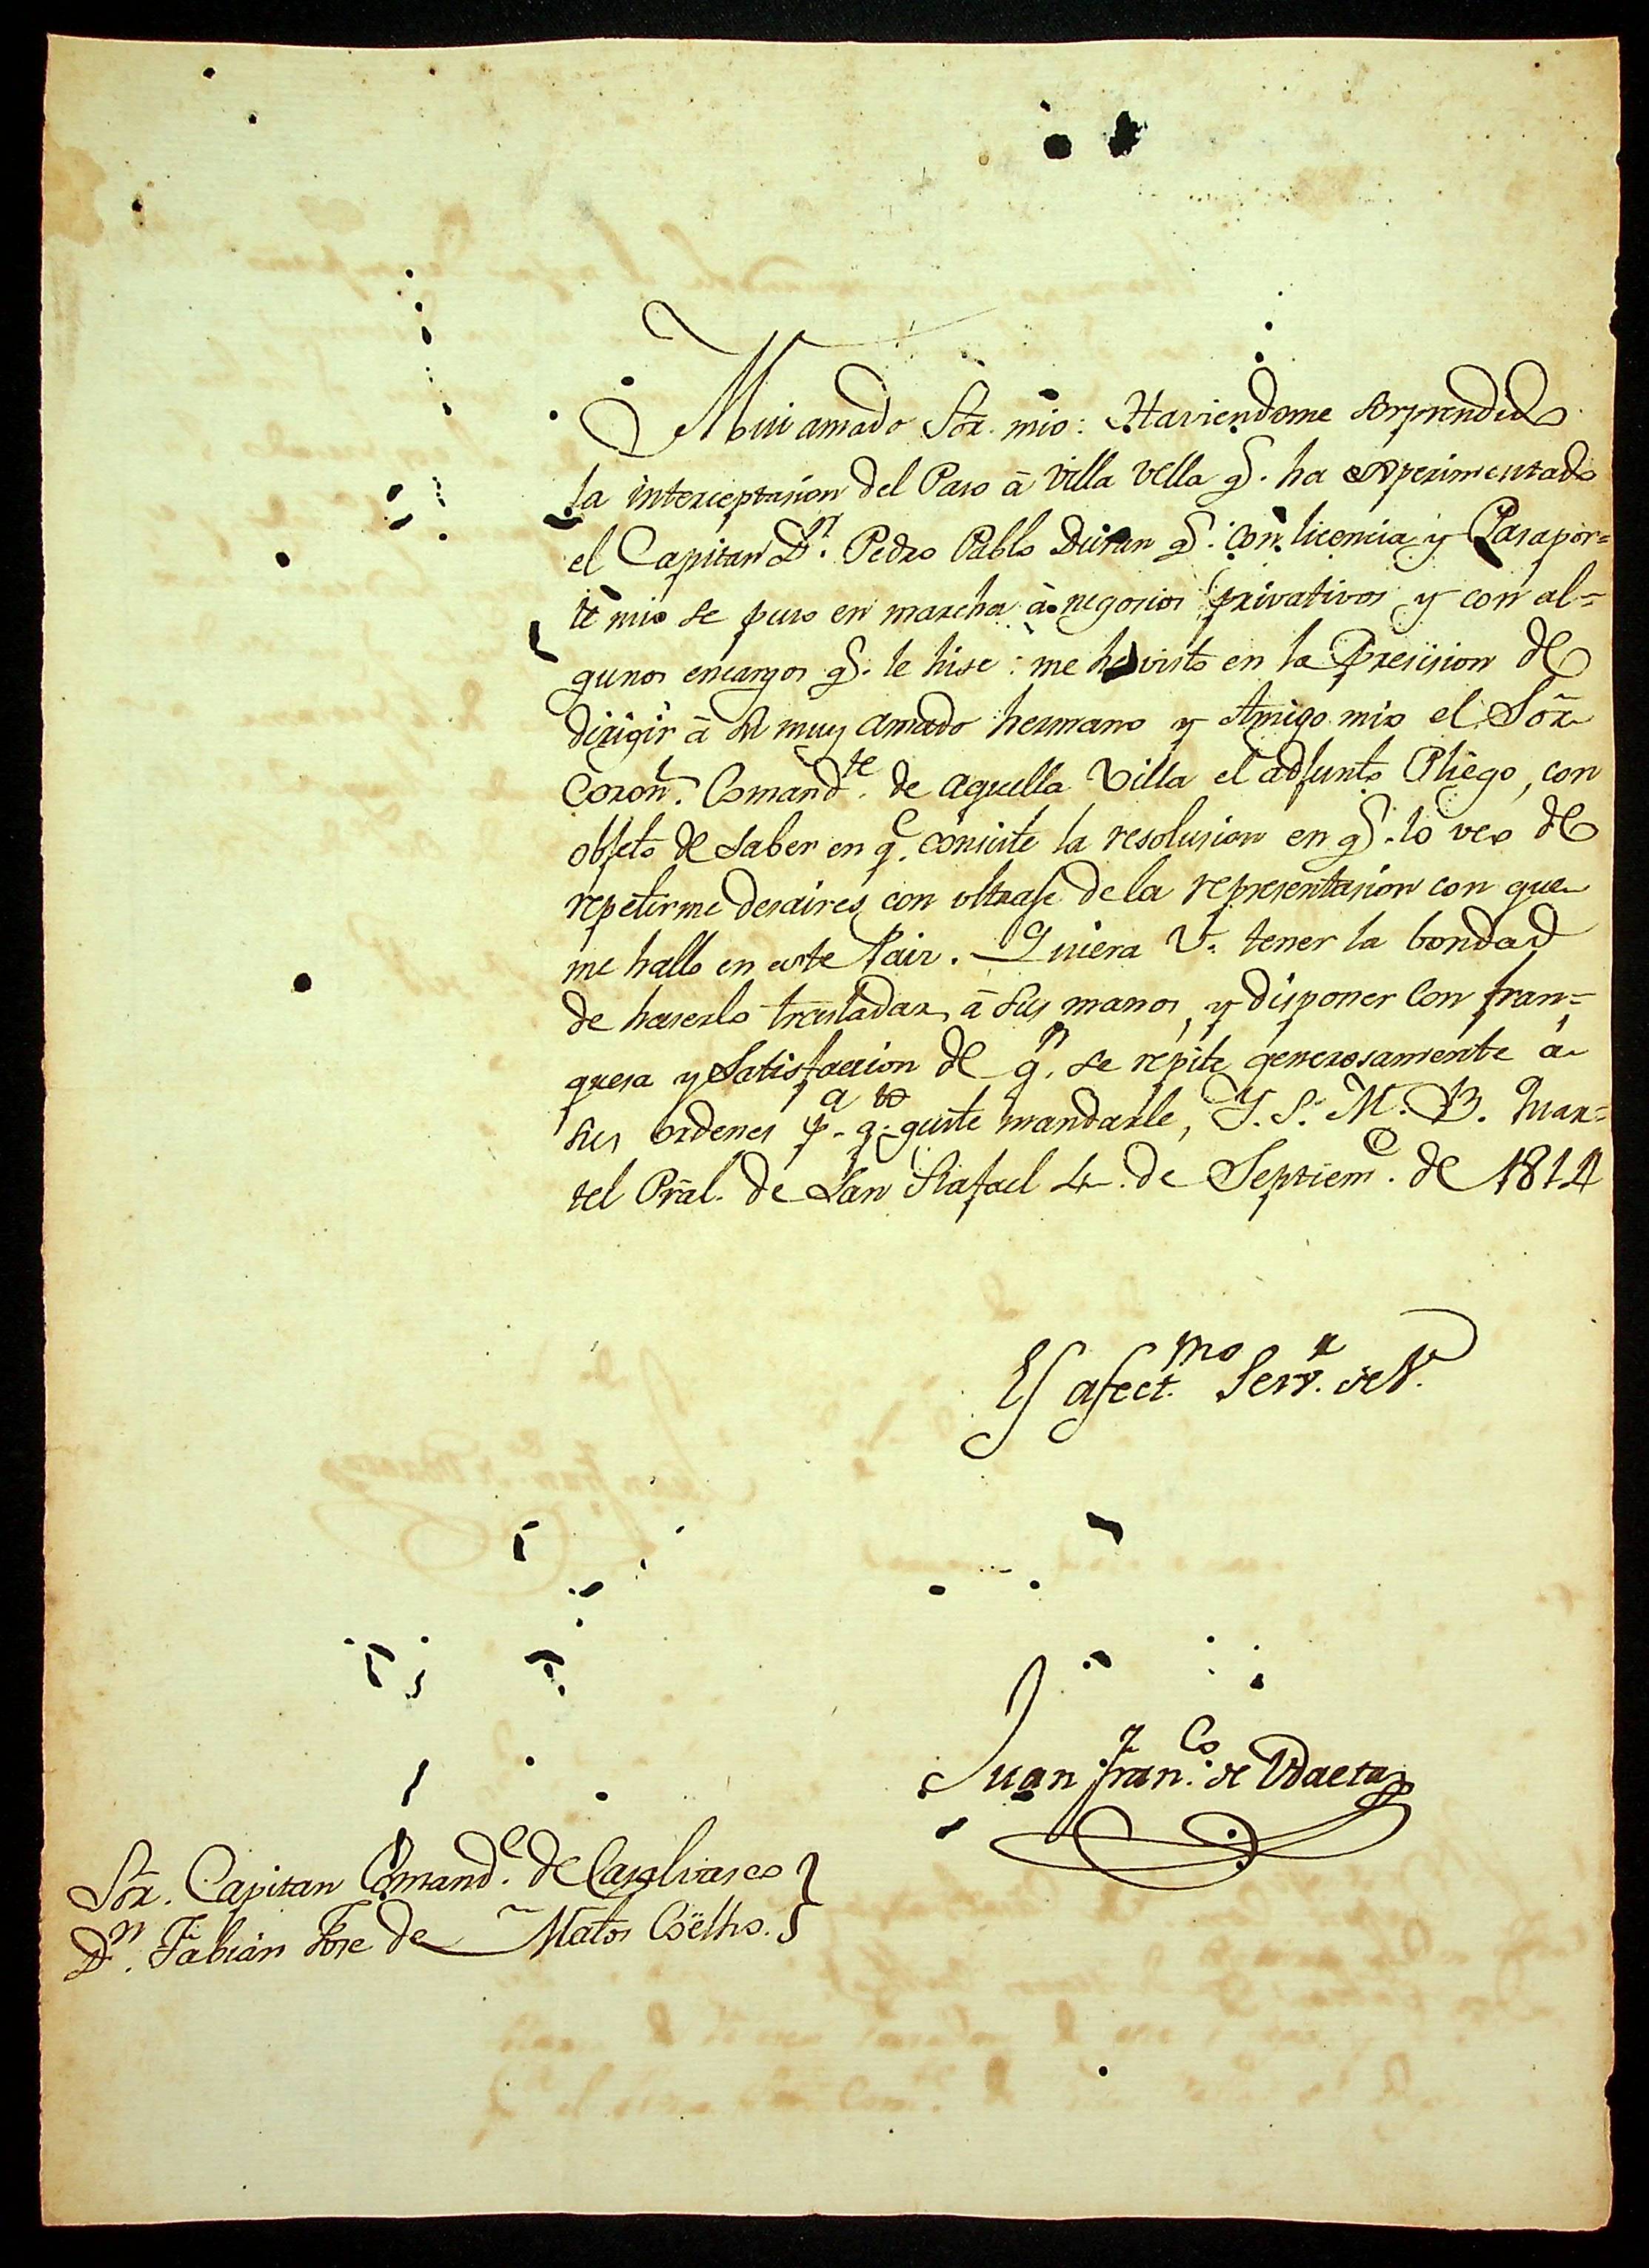 Mui amado Sõr. mio: Haviendome sorprendido
la interceptasion del Paso â Villa Vella q̃. ha experimentado
el Capitan Dn. Pedro Pablo Duran q̃. con licencia y Pasapor=
te mio se puso en marcha â negosios privativos y con al=
gunos encargos q̃. le hise: me he visto en la Presision de
dirigir â su muy amado hermano y Amigo mio el Sõr
Coron̄l. Comandte. de aquella Villa el adjunto Pliego, con
objeto de saber en qe. consiste la resolusion en q̃. lo veo de
repetirme desaires con ultraje de la representasion con que
me hallo en este Pais. Quiera V. tener la bondad
de haserlo trasladar â sus manos, y disponer con fran=
quesa y Satisfaccion de qn. se repite generosamente â
sus ordenes pa. qto. guste mandarle, Y. S. M. B. Quar=
tel Prãl. de San Rafael 4. de Septieme. de 1814
Es afectmo. Servr. de V.
Juan Franco. de Udaeta
Sõr. Capitan Comande. de Casalvasco
Dn. Fabian Jose de Matos Coëlho.